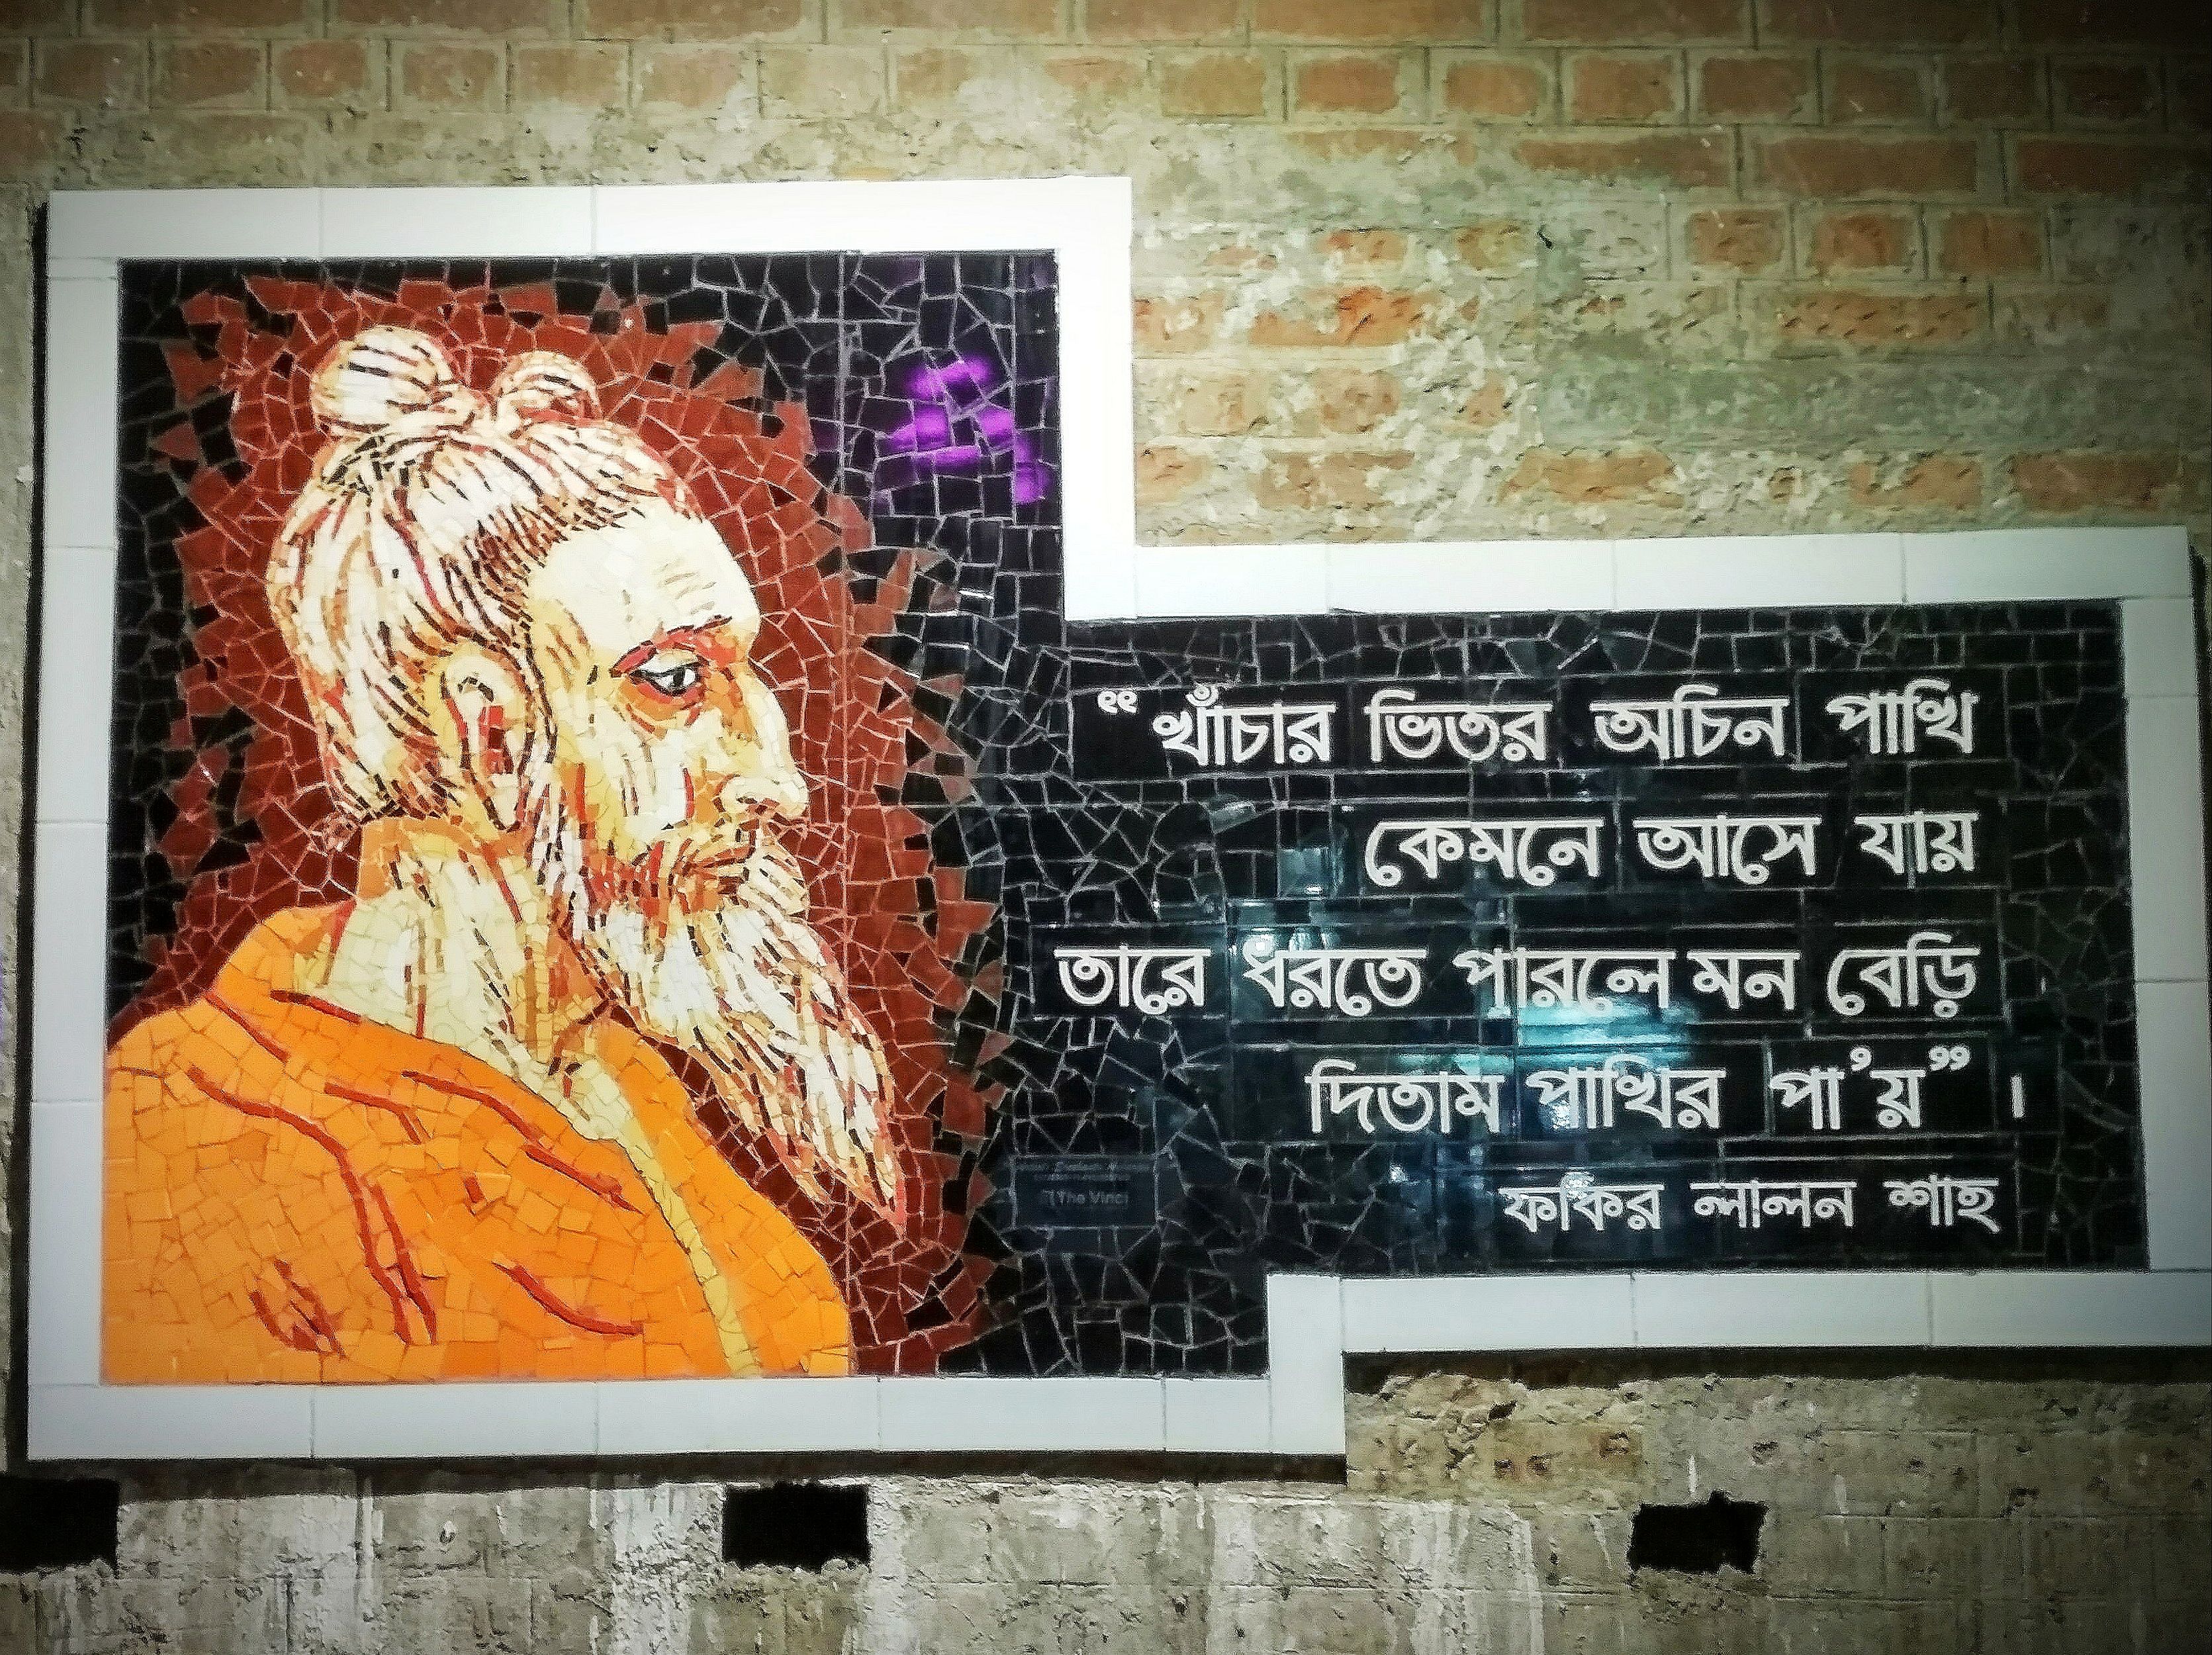 “খাঁচার ভিতর অচিন পাখি
কেমনে আসে যায়
তারে ধরতে পারলে মন বেড়ি
দিতাম পাখির পা’য়” ।
ফকির লালন শাহ
The Vinci